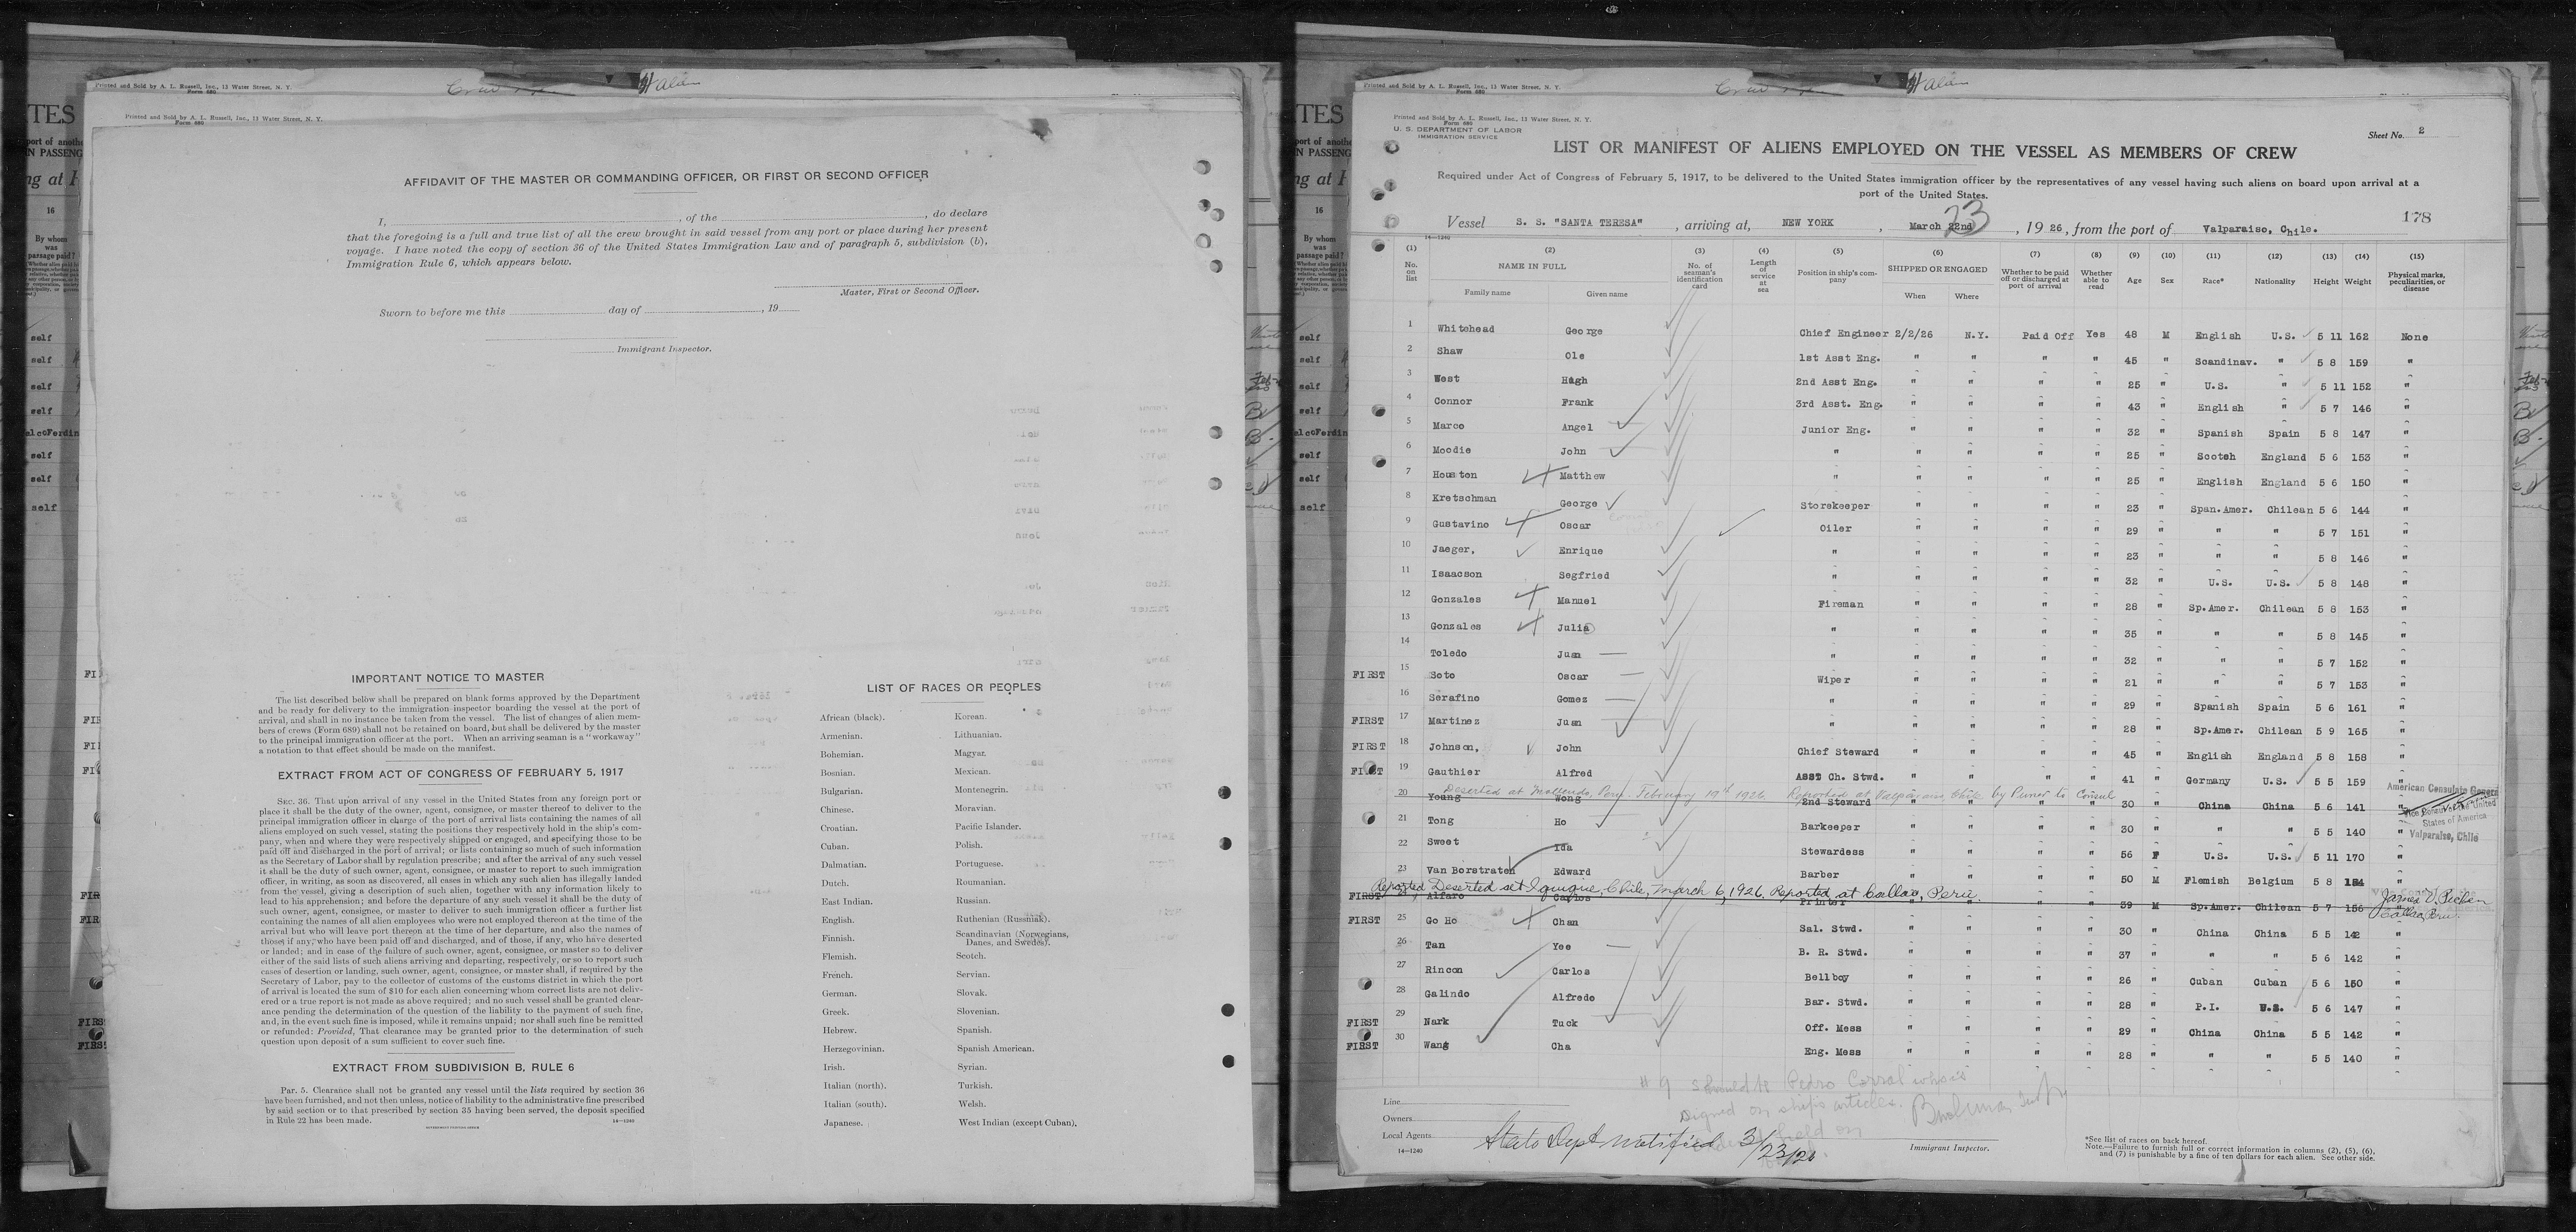 Printed and Sold by A. L. Russell, Inc., 13 Water Street, N. Y.
Form 680
Printed and Sold by A. L. Russell, Inc., 13 Water Street, N. Y.
Form 680
AFFIDAVIT OF THE MASTER OR COMMANDING OFFICER, OR FIRST OR SECOND OFFICER
I, , of the , do declare
that the foregoing is a full and true list of all the crew brought in said vessel from any port or place during her present
voyage. I have noted the copy of section 36 of the United States Immigration Law and of paragraph 5, subdivision (b),
Immigration Rule 6, which appears below.
Master, First or Second Officer.
Sworn to before me this day of , 19
Immigrant Inspector.
IMPORTANT NOTICE TO MASTER
The list described below shall be prepared on blank forms approved by the Department
and be ready for delivery to the immigration inspector boarding the vessel at the port of
arrival, and shall in no instance be taken from the vessel. The list of changes of alien mem-
bers of crews (Form 689) shall not be retained on board, but shall be delivered by the master
to the principal immigration officer at the port. When an arriving seaman is a "workaway"
a notation to that effect should be made on the manifest.
EXTRACT FROM ACT OF CONGRESS OF FEBRUARY 5, 1917
SEC. 36. That upon arrival of any vessel in the United States from any foreign port or
place it shall be the duty of the owner, agent, consignee, or master thereof to deliver to the
principal immigration officer in charge of the port of arrival lists containing the names of all
aliens employed on such vessel, stating the positions they respectively hold in the ship's com-
pany, when and where they were respectively shipped or engaged, and specifying those to be
paid off and discharged in the port of arrival; or lists containing so much of such information
as the Secretary of Labor shall by regulation prescribe; and after the arrival of any such vessel
it shall be the duty of such owner, agent, consignee, or master to report to such immigration
officer, in writing, as soon as discovered, all cases in which any such alien has illegally landed
from the vessel, giving a description of such alien, together with any information likely to
lead to his apprehension; and before the departure of any such vessel it shall be the duty of
such owner, agent, consignee, or master to deliver to such immigration officer a further list
containing the names of all alien employees who were not employed thereon at the time of the
arrival but who will leave port thereon at the time of her departure, and also the names of
those, if any, who have been paid off and discharged, and of those, if any, who have deserted
or landed; and in case of the failure of such owner, agent, consignee, or master so to deliver
either of the said lists of such aliens arriving and departing, respectively, or so to report such
cases of desertion or landing, such owner, agent, consignee, or master shall, if required by the
Secretary of Labor, pay to the collector of customs of the customs district in which the port
of arrival is located the sum of $10 for each alien concerning whom correct lists are not deliv-
ered or a true report is not made as above required; and no such vessel shall be granted clear-
ance pending the determination of the question of the liability to the payment of such fine,
and, in the event such fine is imposed, while it remains unpaid; nor shall such fine be remitted
or refunded: Provided, That clearance may be granted prior to the determination of such
question upon deposit of a sum sufficient to cover such fine.
EXTRACT FROM SUBDIVISION B, RULE 6
Par. 5. Clearance shall not be granted any vessel until the lists required by section 36
have been furnished, and not then unless, notice of liability to the administrative fine prescribed
by said section or to that prescribed by section 35 having been served, the deposit specified
in Rule 22 has been made. 14—1240
GOVERNMENT PRINTING OFFICE
LIST OF RACES OR PEOPLES
African (black). Korean.
Armenian. Lithuanian.
Bohemian. Magyar.
Bosnian. Mexican.
Bulgarian. Montenegrin.
Chinese. Moravian.
Croatian. Pacific Islander.
Cuban. Polish.
Dalmatian. Portuguese.
Dutch. Roumanian.
East Indian. Russian.
English. Ruthenian (Russniak).
Finnish. Scandinavian (Norwegians,
Danes, and Swedes).
Flemish. Scotch.
French. Servian.
German. Slovak.
Greek. Slovenian.
Hebrew. Spanish.
Herzegovinian. Spanish American.
Irish. Syrian.
Italian (north). Turkish.
Italian (south). Welsh.
Japanese. West Indian (except Cuban).
Printed and Sold by A. L. Russell, Inc., 13 Water Street, N. Y.
Form 680
Printed and Sold by A. L. Russell, Inc., 13 Water Street, N. Y.
Form 680
U. S. DEPARTMENT OF LABOR
IMMIGRATION SERVICE
Sheet No. 2
LIST OR MANIFEST OF ALIENS EMPLOYED ON THE VESSEL AS MEMBERS OF CREW
Required under Act of Congress of February 5, 1917, to be delivered to the United States immigration officer by the representatives of any vessel having such aliens on board upon arrival at a
port of the United States.
178
Vessel S. S. "SANTA TERESA" , arriving at, NEW YORK , March 22nd 23 , 19 26, from the port of Valparaiso, Chile.
14—1240
(1) (2) (3) (4) (5) (6) (7) (8) (9) (10) (11) (12) (13) (14) (15)
No. on list NAME IN FULL Family name Given name No. of seaman's identification card Length of service at sea Position in ship's company SHIPPED OR ENGAGED When Where Whether to be paid off or discharged at port of arrival Whether able to read Age Sex Race* Nationality Height Weight Physical marks, peculiarities, or disease
1 Whitehead George Chief Engineer 2/2/26 N.Y. Paid Off Yes 48 M English U.S. 5 11 162 None
2 Shaw Ole 1st Asst Eng. " " " " 45 " Scandinav. " 5 8 159 "
3 West Hugh 2nd Asst Eng. " " " " 25 " U.S. " 5 11 152 "
4 Connor Frank 3rd Asst. Eng. " " " " 43 " English " 5 7 146 "
5 Marco Angel Junior Eng. " " " " 32 " Spanish Spain 5 8 147 "
6 Moodie John " " " " " 25 " Scotch England 5 6 153 "
7 Houston Matthew " " " " " 25 " English England 5 6 150 "
8 Kretschman George Storekeeper " " " " 23 " Span.Amer. Chilean 5 6 144 "
9 Gustavino Oscar Oiler " " " " 29 " " " 5 7 151 "
10 Jaeger, Enrique " " " " " 23 " " " 5 8 146 "
11 Isaacson Segfried " " " " " 32 " U.S. U.S. 5 8 148 "
12 Gonzales Manuel Fireman " " " " 28 " Sp.Amer. Chilean 5 8 153 "
13 Gonzales Julio " " " " " 35 " " " 5 8 145 "
14 Toledo Juan " " " " " 32 " " " 5 7 152 "
FIRST 15 Soto Oscar Wiper " " " " 21 " " " 5 7 153 "
16 Serafino Gomez " " " " " 29 " Spanish Spain 5 6 161 "
FIRST 17 Martinez Juan " " " " " 28 " Sp.Amer. Chilean 5 9 165 "
FIRST 18 Johnson, John Chief Steward " " " " 45 " English England 5 8 158 "
FIRST 19 Gauthier Alfred ASST Ch. Stwd. " " " " 41 " Germany U.S. 5 5 159 "
Deserted at Mollendo, Peru February 19th 1926 Reported at Valparaiso, Chile by Purser to Consul
20 Young Wong 2nd Steward " " " " 30 " China China 5 6 141 "
American Consulate General
Vice Consul of the United
States of America
Valparaiso, Chile
21 Tong Ho Barkeeper " " " " 30 " " " 5 5 140 "
22 Sweet Ida Stewardess " " " " 56 F U.S. U.S. 5 11 170 "
23 Van Borstraten Edward Barber " " " " 50 M Flemish Belgium 5 8 154 "
Reported Deserted at Iquique, Chile, March 6, 1926. Reported at Callao, Peru.
FIRST 24 Alfaro Carlos Printer " " " " 39 " Sp.Amer. Chilean 5 7 156 "
James V.
Callao, Peru.
FIRST 25 Go Ho Chan Sal. Stwd. " " " " 30 " China China 5 5 142 "
26 Tan Yee B. R. Stwd. " " " " 37 " " " 5 6 142 "
27 Rincon Carlos Bellboy " " " " 26 " Cuban Cuban 5 6 150 "
28 Galindo Alfredo Bar. Stwd. " " " " 28 " P.I. U.S. 5 6 147 "
FIRST 29 Nark Tuck Off. Mess " " " " 29 " China China 5 5 142 "
FIRST 30 Wang Cha Eng. Mess " " " " 28 " " " 5 5 140 "
# 9 should be Pedro Corral who is
signed on ship's articles.
Line
Owners
Local Agents
State Dept notified 3/23/26
14—1240
Immigrant Inspector.
*See list of races on back hereof.
Note.—Failure to furnish full or correct information in columns (2), (5), (6),
and (7) is punishable by a fine of ten dollars for each alien. See other side.